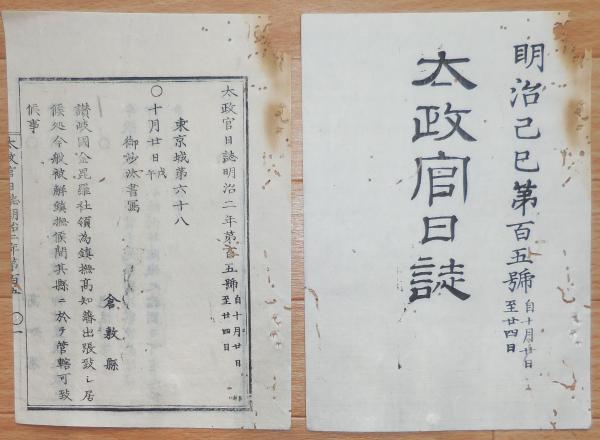 明治己巳第百五號 自十月廿日
至廿四日
太政官日誌
太政官日誌明治二年第百五號 自十月廿日
至廿四日
東京城第六十八
〇十月廿日戊午
御沙汰書寫
倉敷縣
讃岐國金毘羅社領為鎮撫髙知藩出張致シ居
候処今般被解鎮撫候間其縣ニ於テ管轄可致
候事
太政官日誌明治二年第百五 〇一